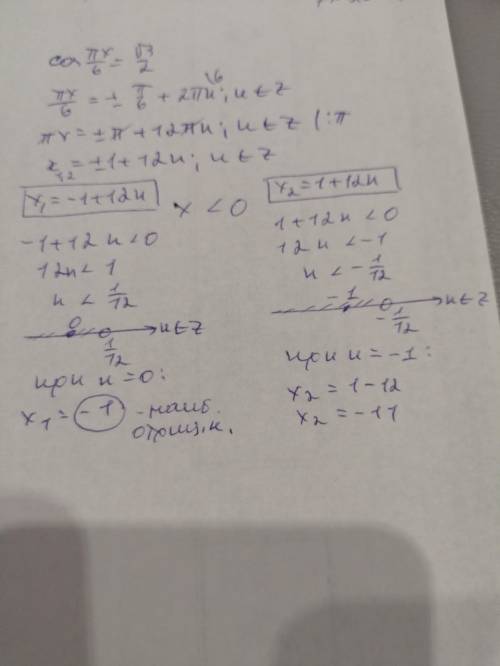 cos πx/6 = √3/2
πx/6 = ± π/6 + 2πn; n ∈ Z \6
πx = ± π + 12πn; n ∈ Z (: π
x₁,₂ = ±1 + 12n; n ∈ Z
x₁ = -1 + 12n
x < 0
-1 + 12n < 0
12n < 1
n < 1/12
0 1/12 n ∈ Z
при n = 0:
x₁ = -1 - наиб.
отриц.к.
x₂ = 1 + 12n
1 + 12n < 0
12n < -1
n < - 1/12
-1 - 1/12 n ∈ Z
при n = -1:
x₂ = 1 - 12
x₂ = -11